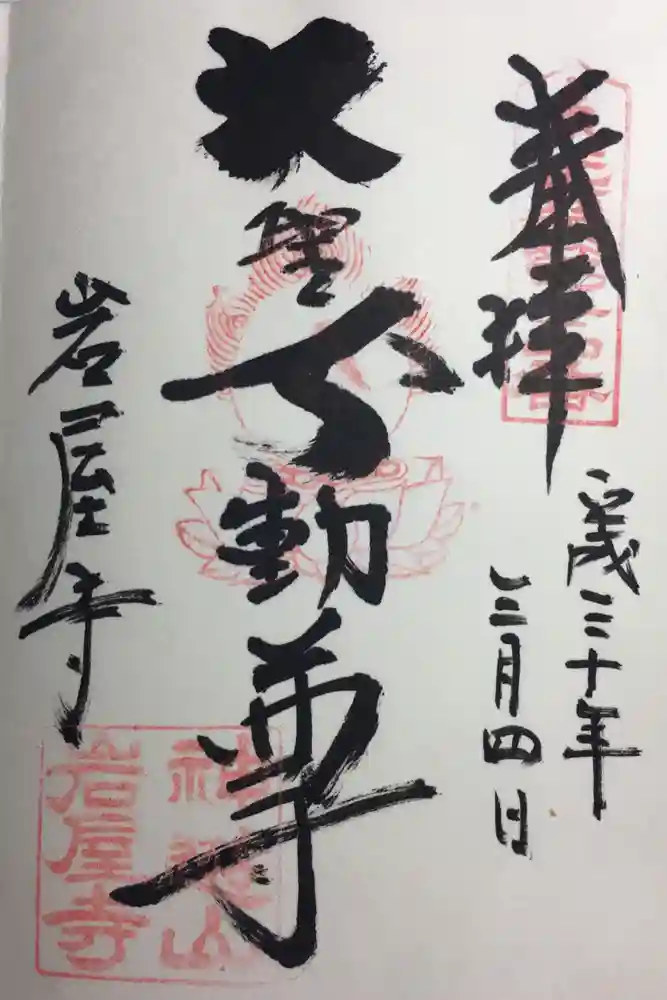 奉拝
平成三十年
三月四日
大聖不動尊
岩屋寺
神遊山
岩屋寺